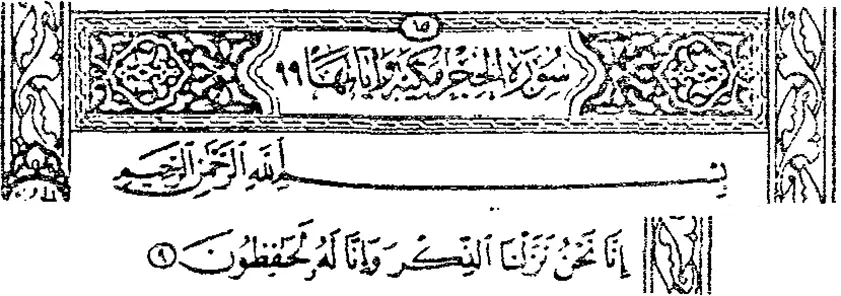 ١٥
سُورَةُ الحِجْرِ مَكِّيَّةٌ وَآيَاتُهَا ٩٩
بِسْمِ اللَّهِ الرَّحْمَٰنِ الرَّحِيمِ
إِنَّا نَحْنُ نَزَّلْنَا الذِّكْرَ وَإِنَّا لَهُ لَحَٰفِظُونَ ٩